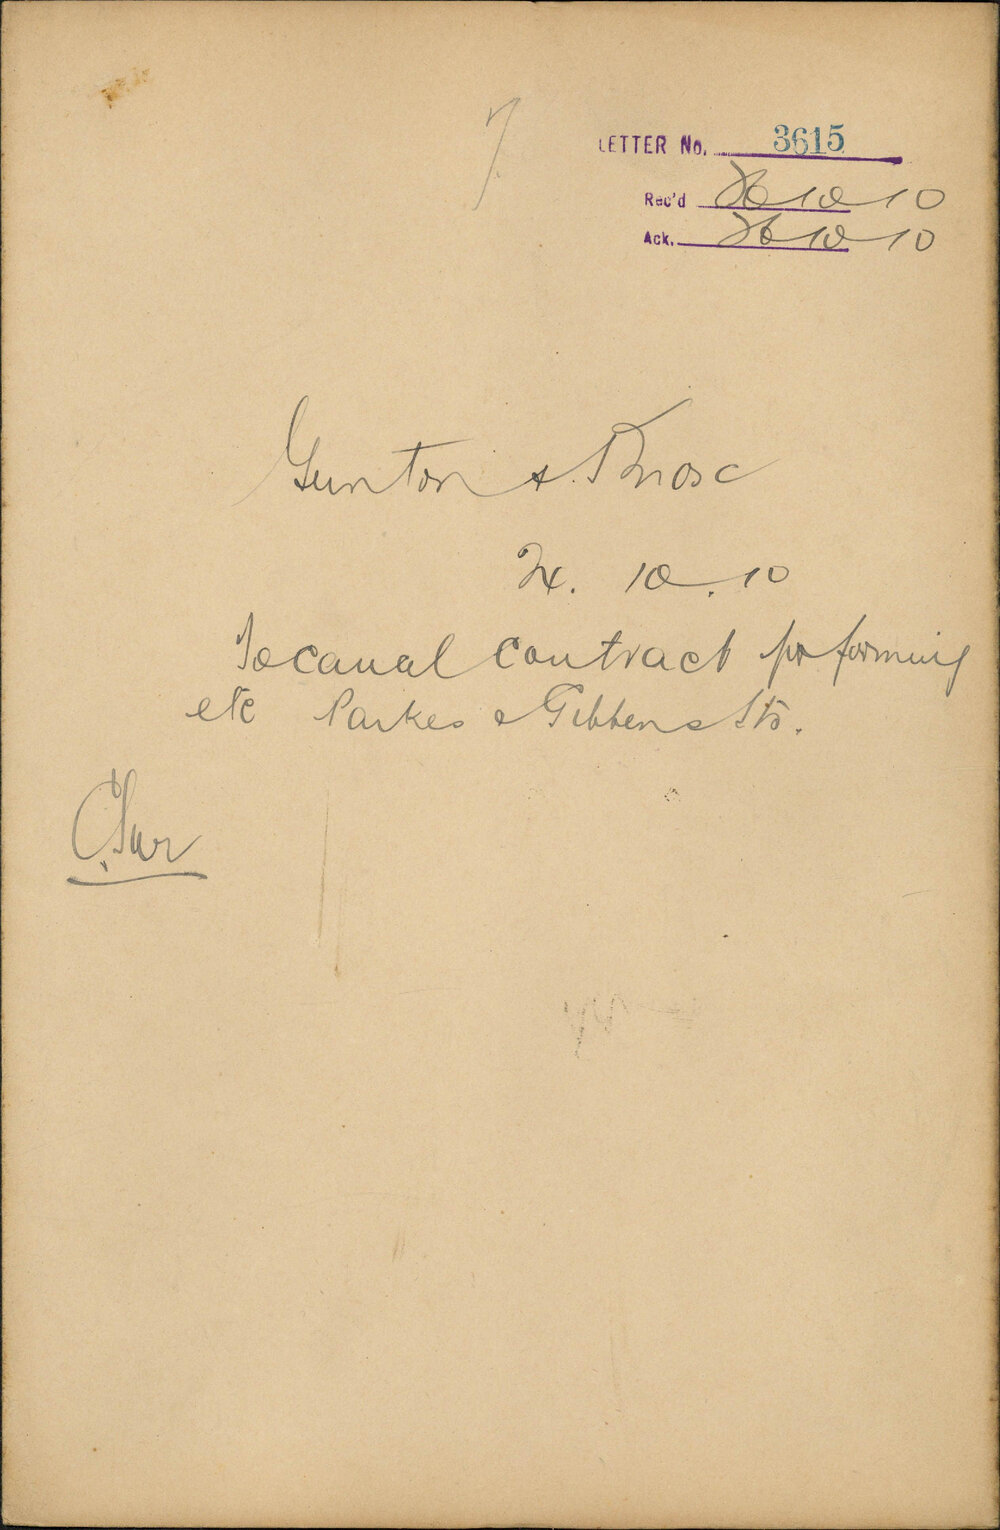 7.
LETTER No. 3615
Rec'd 26 10 10
Ack. 26 10 10
Gunton &
24. 10. 10
To cancel contract for forming
etc Parkes & Gibbens Sts.
C. Sur